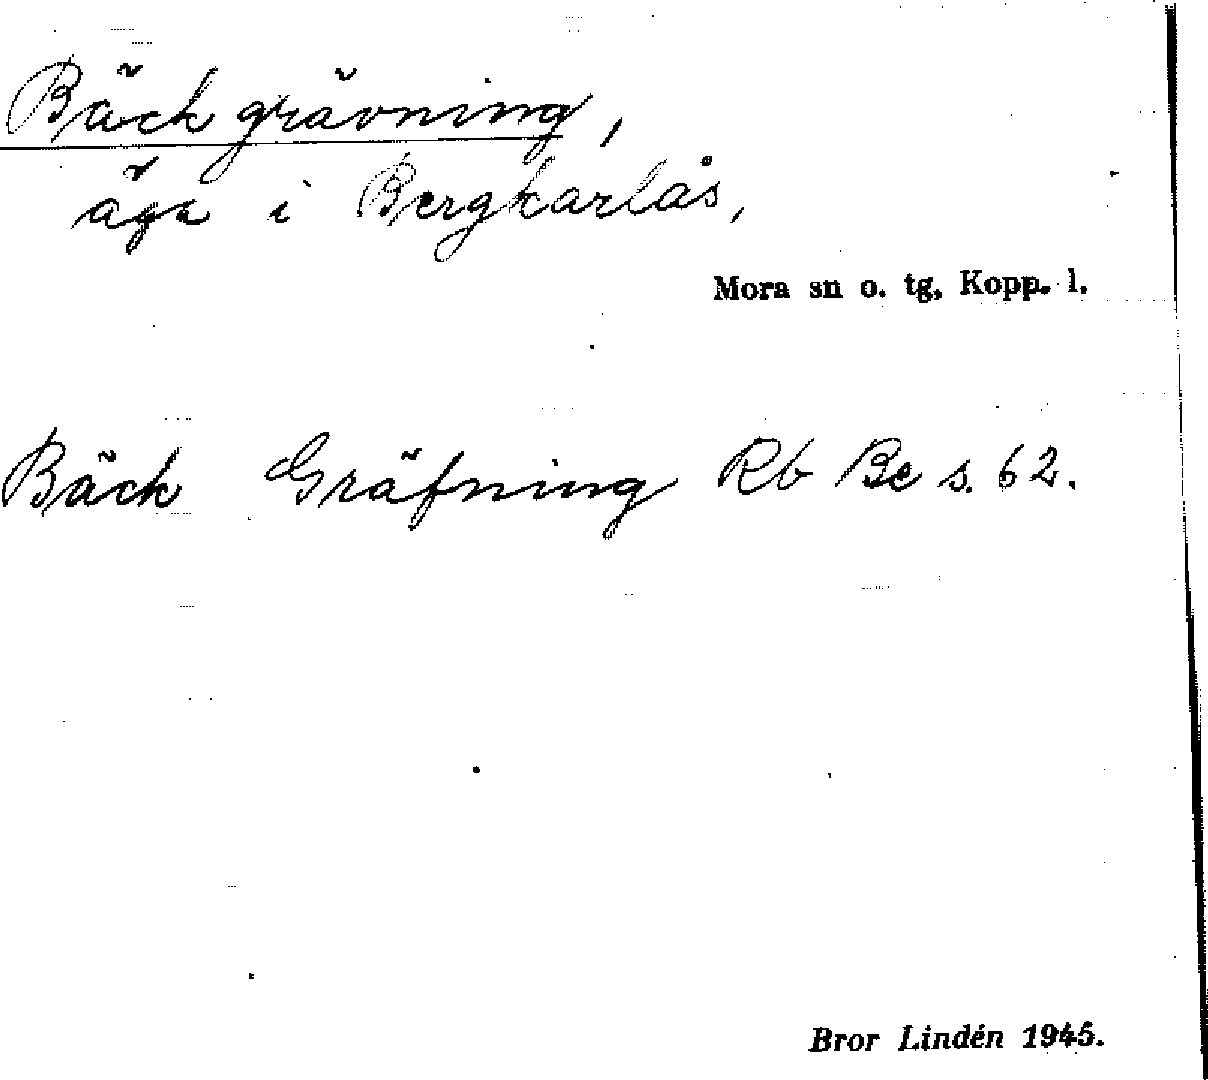 Bäckgrävning,
äga i Bergkarlås,
Mora sn o. tg, Kopp. l.
Bäck Gräfning Rb Be s. 62.
Bror Lindén 1945.